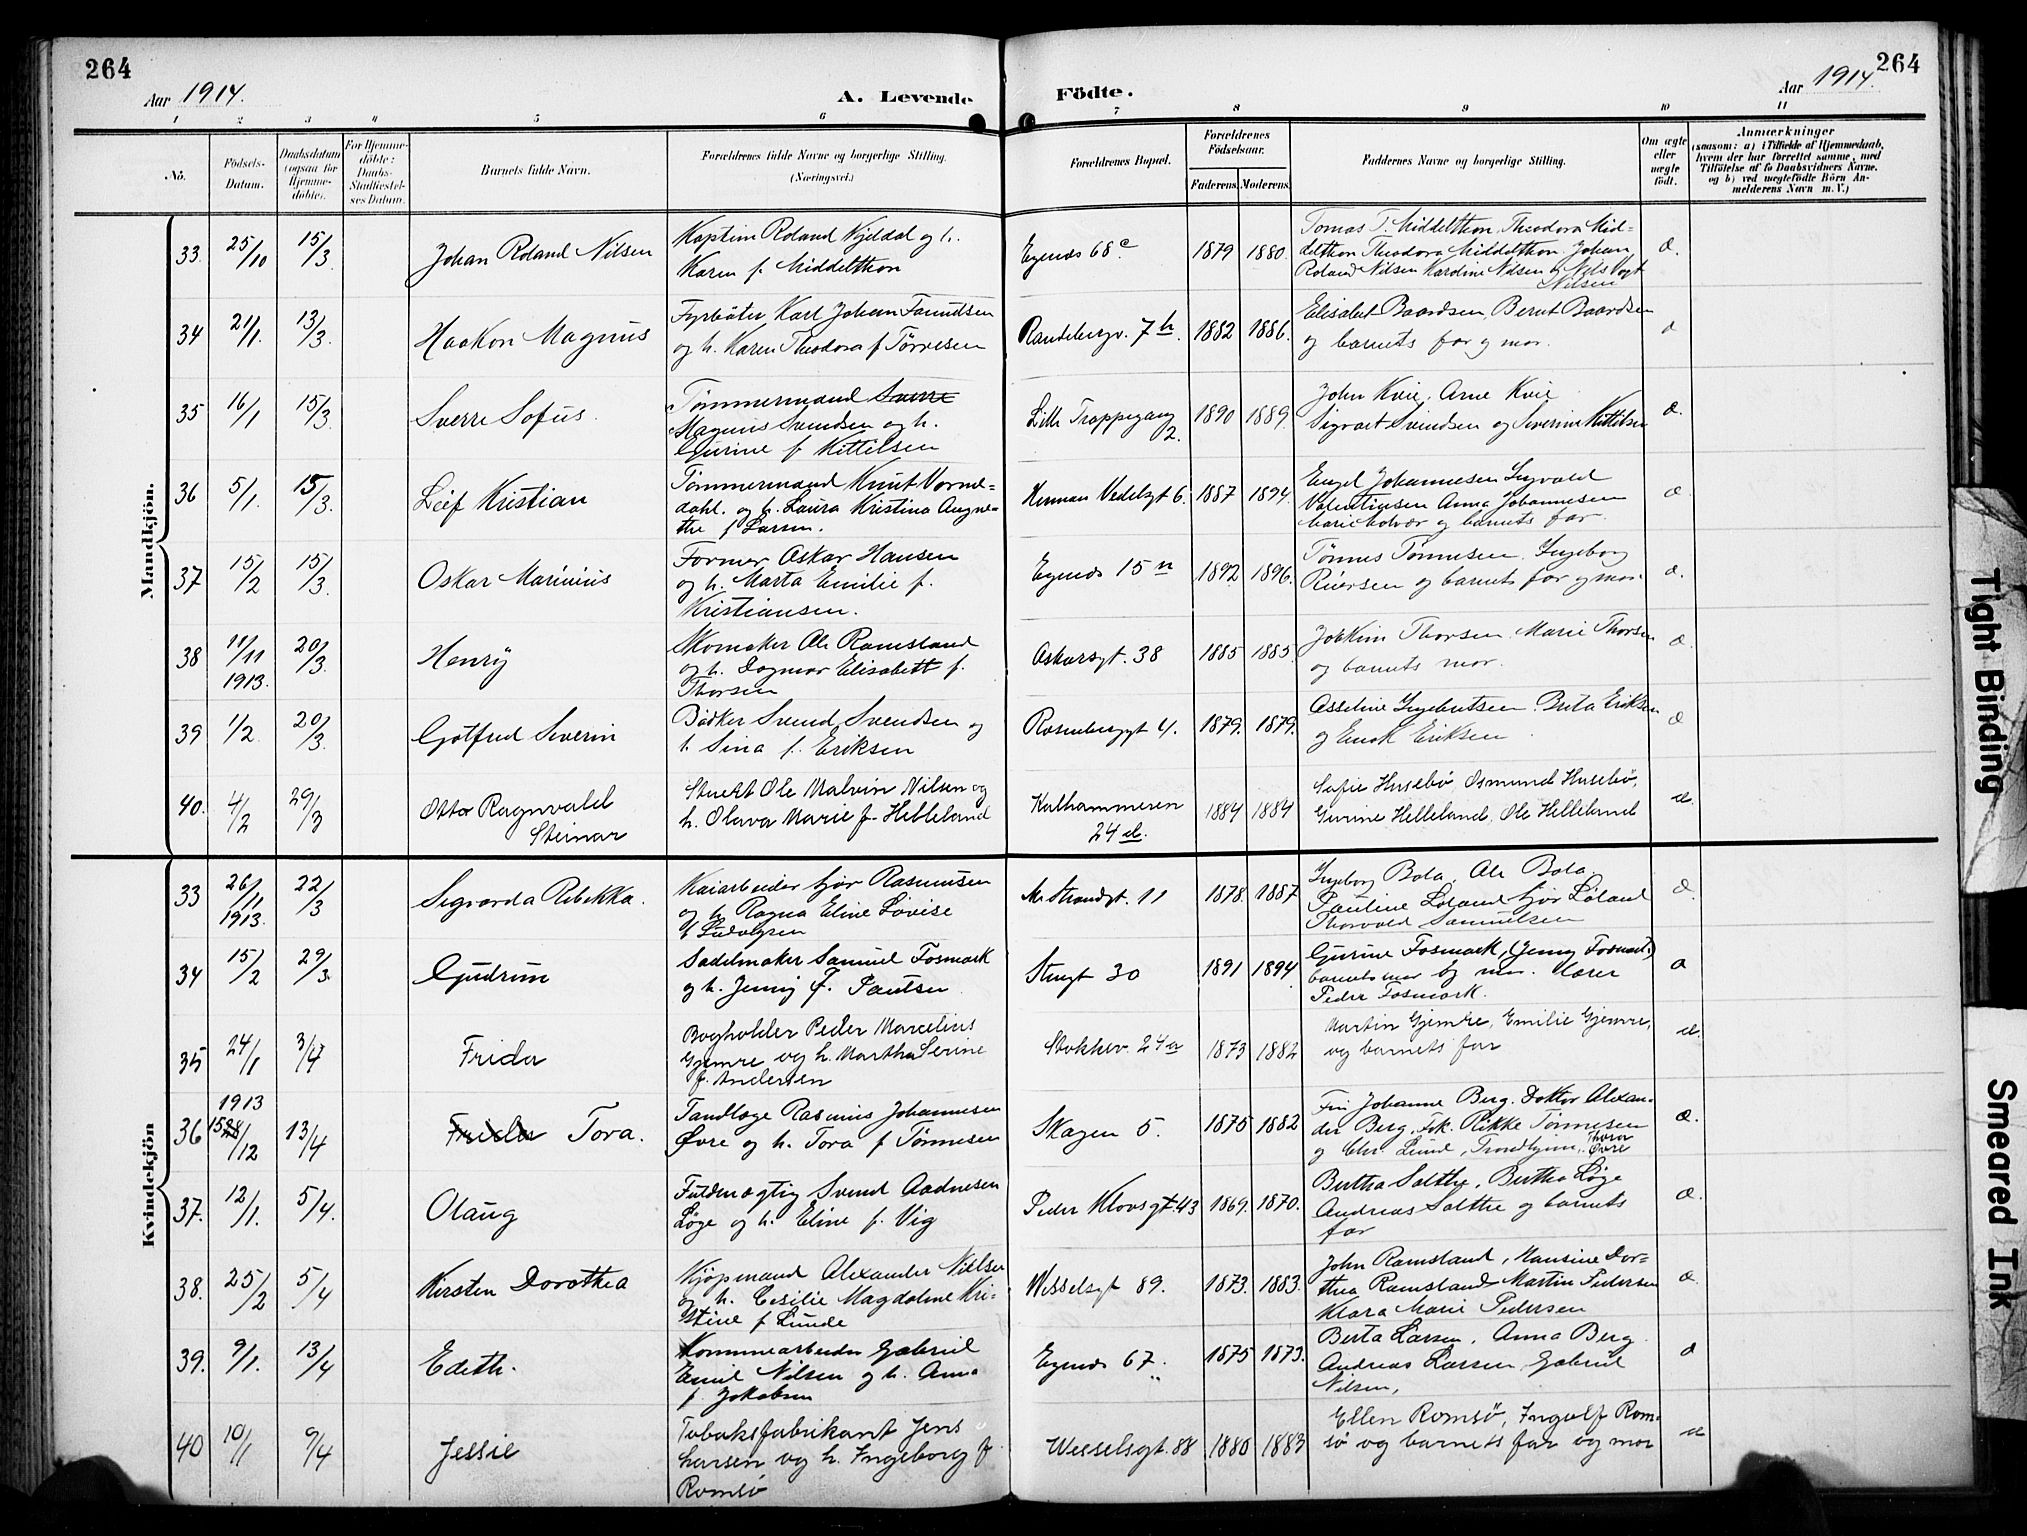 264
Aar 1914.
A. Levende Födte.
Aar 1914.
264
1 2 3 4 5 6 7 8 9 10 11
No.
Födsels-
Datum.
Daabsdatum
(ogsaa for
Hjemme-
döbte).
For Hjemme-
döbte:
Daabs-
Stadfæstel-
ses Datum.
Barnets fulde Navn.
Forældrenes fulde Navne og borgerlige Stilling.
(Næringsvei.)
Forældrenes Bopæl.
Forældrenes
Födselsaar.
Faderens. Moderens.
Faddernes Navne og borgerlige Stilling.
Om ægte
eller
uægte
födt.
Anmærkninger
(saasom: a) i Tilfælde af Hjemmedaab,
hvem der har forrettet samme, med
Tilföielse af to Daabsvidners Navne,
og b) ved uægtefödte Börn An-
melderens Navn m. V.)
Mandkjön.
33. 25/10 15/3 Johan Roland Nilsen
Kaptein Roland Kjeldal og h.
Karen f. Middelthon
Egenæs 68c 1879 1880.
Tomas T. Middelthon, Theodora Mid-
delthon Theodora Middelthon Johan
Roland Nilsen Kardine Nilsen og Nils Vogt
Nilsen
34 21/1. 13/3. Haakon Magnus
Fyrbøter Karl Johan
og h. Karen Theodora f Tørresen
Randebergv. 7h. 1882 1886.
Elisabet Baardsen, Bernt Baardsen
og barnets far og mor.
35 16/1 15/3 Sverre Sofus.
Tømmermand Sverre
Magnus Svendsen og h.
Gurine f Kittelsen
Lille Trappegang
2.
1890 1889.
John Kvie, Arne Kvie
Sigvart Svendsen og Severine Kittilsen
36 5/1. 15/3. Leif Kristian
Tømmermand Knut Vorme-
dahl. og h. Laura Kristina Aagne-
the f Larsen.
Herman Vedelsgt 6. 1887 1894.
Engel Johannesen Ingvald
Valentinsen Anna Johannesen
og barnets far.
37 15/2 15/3. Oskar Marinius
Former Oskar Hansen
og h. Marta Emilie f.
Kristiansen.
Egenæs 15n 1892 1896.
Tønnes Tønnesen. Ingeborg
og barnets far og mor.
38 11/11
1913. 20/3 Henry
Skomaker Ole Ramsland
og h. Dagmar Elisabett f.
Thorsen
Oskarsgt. 38 1885 1885.
Joakim Thorsen Marie Thorsen
og barnets mor.
39 1/2. 20/3. Gotfred Severin
Bødker Svend Svendsen og
h. Sina f. Eriksen
Rosenberggt 4. 1879. 1879.
Asseline Ingebretsen Berta Eriksen
og Enok Eriksen
40. 4/2 29/3 Otto Ragnvald
Steinar
Stuert Ole Malvin Nilsen og
h. Olava Marie f. Helleland
Kalhammeren
24d.
1884 1884
Sofie Husebø, Osmund Husebø,
Gurine Helleland, Ole Helleland
Kvindekjön
33 26/1
1913. 22/3 Sigvarda Rebekka.
Kaiarbeider Sjur Rasmusen
og h. Ragna Eline Lovise
f Ludvigsen
N. Strandgt. 11 1878. 1887
Ingeborg Bola, Ole Bola.
Pauline Loland Sjur Loland
Thorvald Samuelsen
34 15/2 29/3. Gudrun
Sadelmaker Samuel Fosmark
og h. Jenny f. Paulsen
Stengt 30 1891 1894.
Gurine Fosmark, (Jenny Fosmark)
barnets mor og mor. Lærer
Peder Fosmark.
35 24/1 3/4 Frida
Bogholder Peder Marcelius
Gjemre og h. Martha Serine
f. Andersen
Stokkev. 24a 1873 1882
Martin Gjemre, Emilie Gjemre,
og barnets far
36 1913
15/12 13/4 Frida Tora.
Tandlæge Rasmus Johannesen
Øvre og h. Tora f Tønnesen
Skagen 5. 1875 1882
Fru Johanne Berg. Doktor Alexan-
der Berg. Frk. Rikke Tønnesen
og Chr. Lund, Trondhjem, Thora
Øvre
37. 12/1. 5/4. Olaug
Fuldmægtig Svend Aadnesen
Løge og h. Eline f. Vig
Peder Klovsgt. 43 1869. 1870.
Bertha Solthe, Bertha Løge
Andreas Solthe og barnets
far
38. 25/2 5/4 Kirsten Dorothea
Kjøpmand Alexander Nielsen
og h. Cesilie Magdalene Kri-
stine f Lunde
Wesselsgt 89. 1873. 1883.
John Ramsland, Hansine Dor-
thea Ramsland Martin Pedersen
Klara Marie Pedersen
39. 9/1. 13/4 Edith.
Kommunearbeider Gabriel
Emil Nilsen og h. Anna
f. Jakobsen
Egenæs 67. 1875 1873.
Berta Larsen, Anna Berg
Andreas Larsen, Gabriel
Nilsen,
40 10/1 9/4 Jessie
Tobaksfabrikant Jens
Larsen og h. Ingeborg f.
Romsø
Wesselsgt. 88 1880 1883
Ellen Romsø, Ingolf Rom-
sø og barnets far og mor
Tight Binding
Smeared Ink